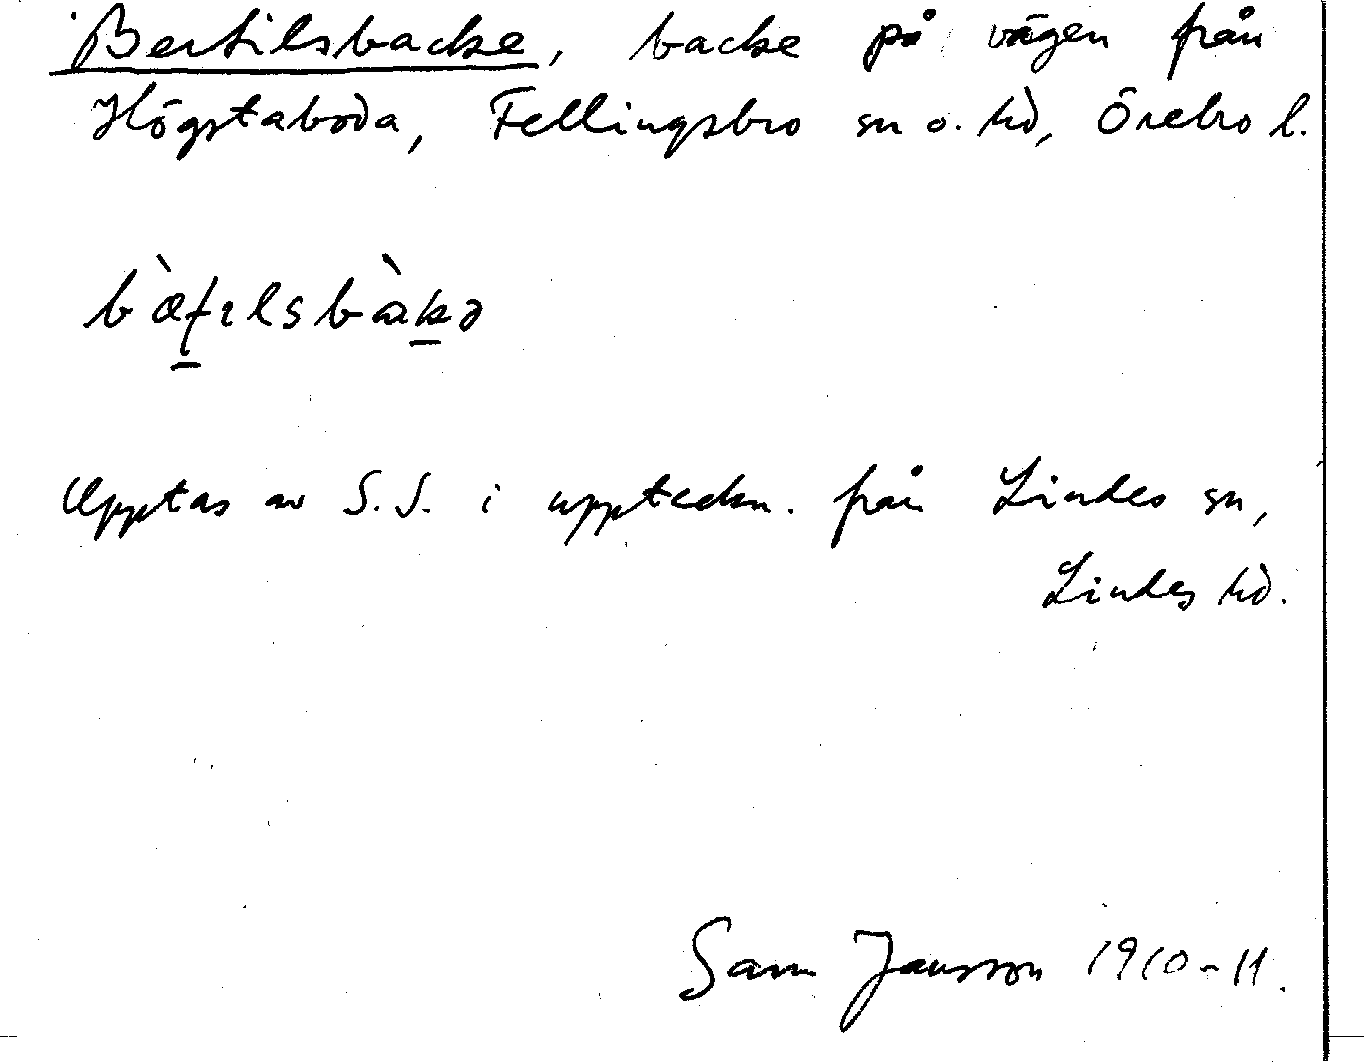 Bertilsbacke, backe på vägen från
Högstaboda, Fellingsbro sn o. hd, Örebro l.
Upptas av S.S. i uppteckn. från Lindes sn,
Lindes hd.
Sam Jansson 1910-11.